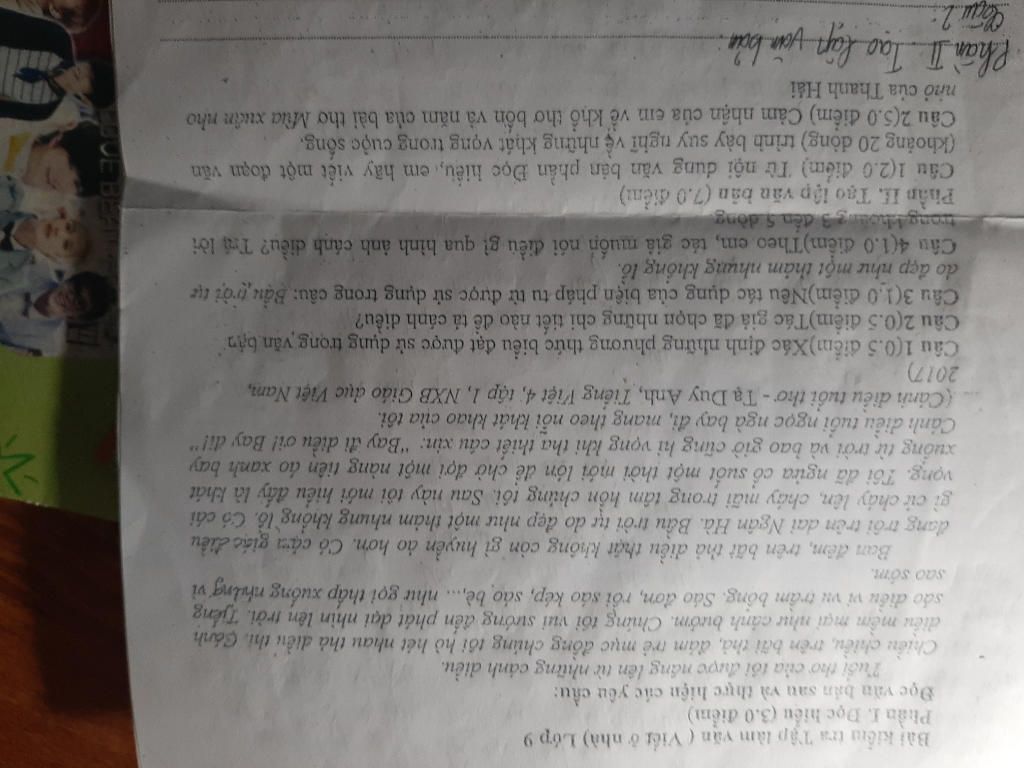 Bài kiểm tra Tập làm văn ( Viết ở nhà) Lớp 9
Phần I. Đọc hiểu (3.0 điểm)
Đọc văn bản sau và thực hiện các yêu cầu:
Tuổi thơ của tôi được nâng lên từ những cánh diều.
Chiều chiều, trên bãi thả, đám trẻ mục đồng chúng tôi hò hét nhau thả diều thi. Cánh
diều mềm mại như cánh bướm. Chúng tôi vui sướng đến phát dại nhìn lên trời. Tiếng
sáo diều vi vu trầm bổng. Sáo đơn, rồi sáo kép, sáo bè,... như gọi thấp xuống những vì
sao sớm.
Ban đêm, trên bãi thả diều thật không còn gì huyền ảo hơn. Có cảm giác diều
đang trôi trên dải Ngân Hà. Bầu trời tự do đẹp như một thảm nhung khổng lồ. Có cái
gì cứ cháy lên, cháy mãi trong tâm hồn chúng tôi. Sau này tôi mới hiểu đấy là khát
vọng. Tôi đã ngửa cổ suốt một thời mới lớn để chờ đợi một nàng tiên áo xanh bay
xuống từ trời và bao giờ cũng hi vọng khi tha thiết cầu xin: "Bay đi diều ơi! Bay đi!"
Cánh diều tuổi ngọc ngà bay đi, mang theo nỗi khát khao của tôi.
(Cánh diều tuổi thơ - Tạ Duy Anh, Tiếng Việt 4, tập 1, NXB Giáo dục Việt Nam,
2017)
Câu 1(0.5 điểm)Xác định những phương thức biểu đạt được sử dụng trong văn bản
Câu 2(0.5 điểm)Tác giả đã chọn những chi tiết nào để tả cánh diều?
Câu 3(1.0 điểm)Nêu tác dụng của biện pháp tu từ được sử dụng trong câu: Bầu trời tự
do đẹp như một thảm nhung khổng lồ.
Câu 4(1.0 điểm)Theo em, tác giả muốn nói điều gì qua hình ảnh cánh diều? Trả lời
trong khoảng 3 đến 5 dòng
Phần II. Tạo lập văn bản (7.0 điểm)
Câu 1(2.0 điểm) Từ nội dung văn bản phần Đọc hiểu, em hãy viết một đoạn văn
(khoảng 20 dòng) trình bày suy nghĩ về những khát vọng trong cuộc sống.
Câu 2(5.0 điểm) Cảm nhận của em về khổ thơ bốn và năm của bài thơ Mùa xuân nho
nhỏ của Thanh Hải
Phần II Tạo lập văn bản.
Câu 2: